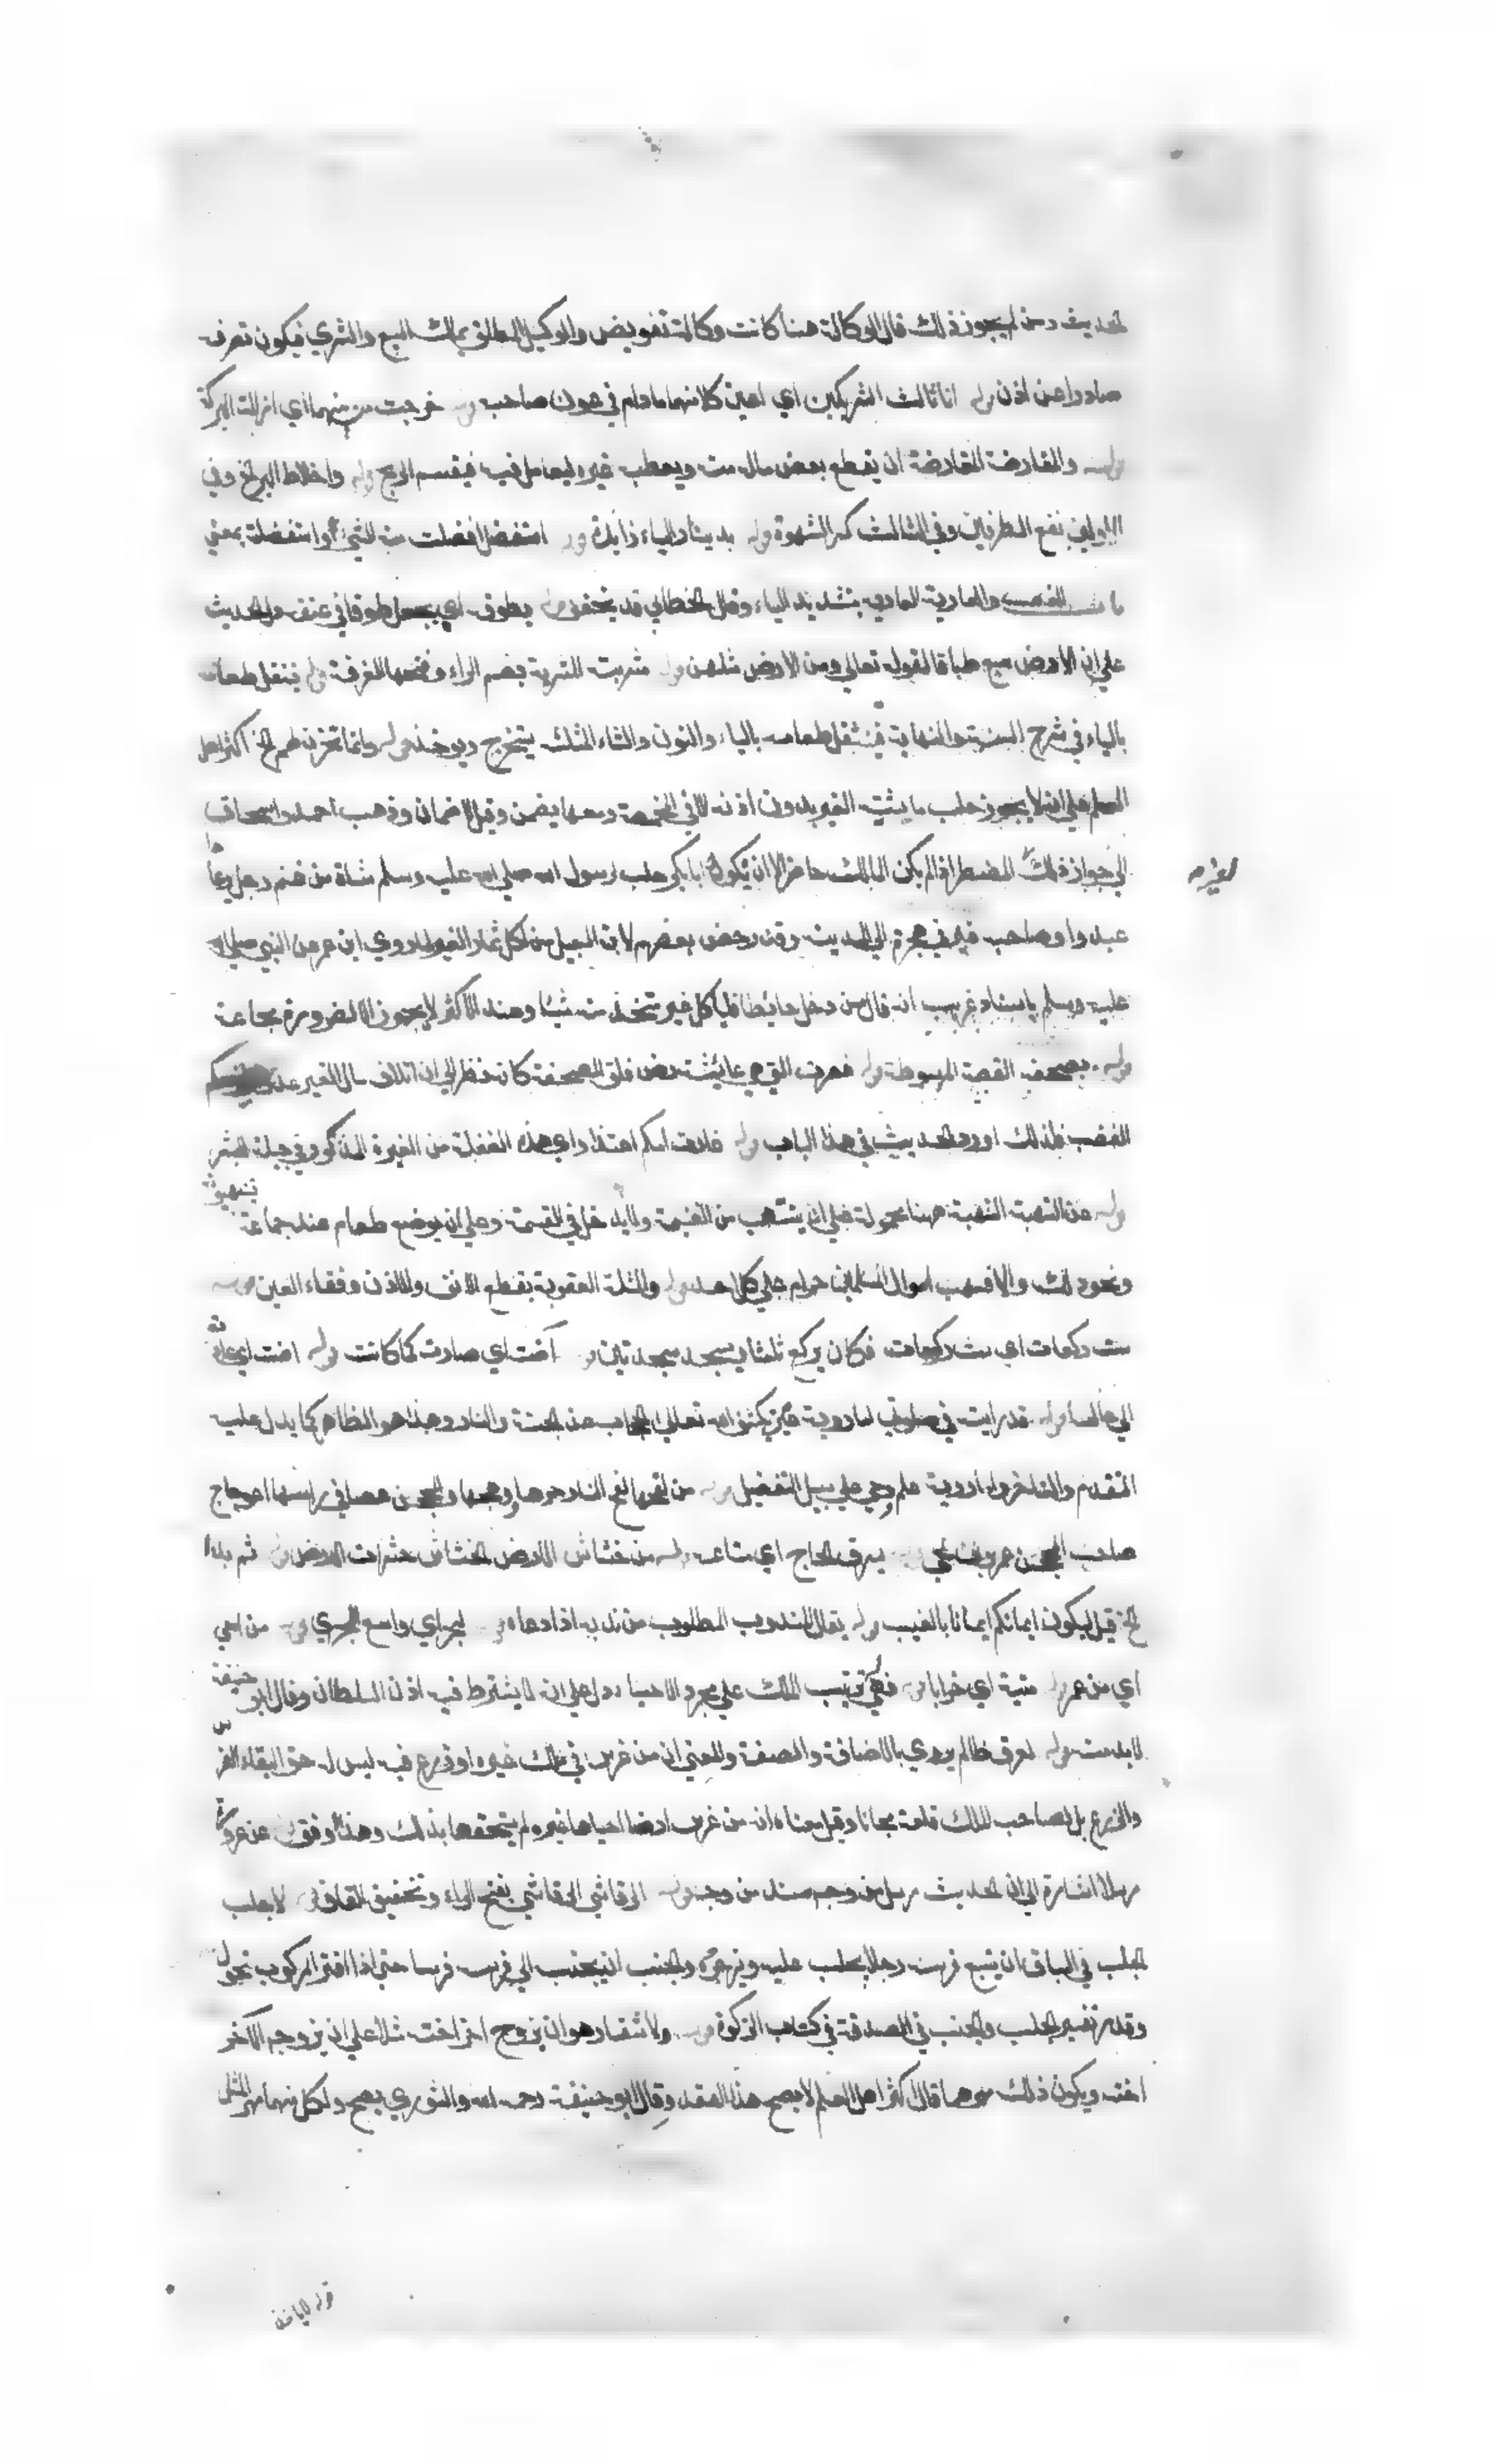 الحديث ومن لم يجوز ذلك قال الوكالة هنا كانت وكالة تفويض والوكيل المطلق يملك البيع والشري فيكون تصرفه
صادرا عن اذن قوله انا ثالث الشريكين اي اعين كلا منهما مادام في عون صاحبه قوله خرجت من بينهما اي ازالت البركة
قوله والمقارضة المقارضة ان يقطع بعض ماله منه ويعطيه غيره ليعامل فيه فيقسم الربح قوله واخلاط البر الخ وفي
الاولين نفع الطرفين وفي الثالث كسر الشهوة قوله بدينار الباء زايدة قوله استفضل افضلت منه الشيء واستفضلته بمعني
باب الغصب والعارية العارية بتشديد الياء وقال الخطابي قد يخفف قوله يطوقه اي يجعل طوقا في عنقه دل الحديث
علي ان الارض سبع طباقا لقوله تعالي ومن الارض مثلهن قوله مشربته المشربة بضم الراء وفتحها الغرفة قوله فينتقل طعامه
بالياء في شرح السنة والنهاية فينتثل طعامه بالياء والنون والثاء المثلث يستخرج ويوخذ قوله وانما تخزن لهم الخ اكثر اهل
العلم علي انه لا يجوز حلب ماشية الغير بدون اذنه الا في المخمصة ومعها يضمن وقيل لا ضمان وذهب احمد واسحاق
الي جواز ذلك لغير المضطر اذا لم يكن المالك حاضرا لان ابابكر حلب لرسول الله صلي الله عليه وسلم شاة من غنم رجل يرعاها
عبد له وصاحبه في هجرته الي المدينة وقد رخص بعضهم لابن السبيل من اكل ثمار الغير لما روي ابن عمر عن النبي صلي الله
عليه وسلم باسناد غريب انه قال من دخل حايطا فلياكل غير متخذ منه شيئا وعند الاكثر لا يجوز الا لضرورة مجاعة
قوله بصحفة القصعة المبسوطة قوله فضربت التي هي عايشة رض فلق الصحفة كانه نظر الي ان اتلاف مال الغير عدوانا حكم
الغصب فلذلك اورد الحديث في هذا الباب قوله غارت امكم اعتذار اي هذه الفعلة من الغيرة المذكورة في جبلة البشر
قوله عن النهبة النهبة ههنا محمولة علي ان ينتهب من الغنيمة ولا يدخل في القسمة وعلي ان يوضع طعام عند جماعة فينهبونه
ونحو ذلك والا فنهب اموال المسلمين حرام علي كل احد قوله والمثلة العقوبة بقطع الانف والاذن وفقاء العين قوله
ست ركعات اي ست ركوعات فكان يركع ثلثا ويسجد سجدتين قوله آضت اي صارت كما كانت قوله اضت اي عادت
الي حالها قوله قد رايته في صلوتي اما روية عين بكشف الله تعالي الحجاب عن الجنة والنار وهذا هو الظاهر كما يدل عليه
التقدم والتاخر واما روية علم وحي علي سبيل التفضيل قوله من لفحها لفح النار حرها ووهجها والمحجن عصا في راسها اعوجاج
صاحب المحجن عمرو بن لحي قوله يسرق الحاج اي متاعه قوله من خشاش الارض الخشاش حشرات الارض قوله ثم بدا
الخ قيل ليكون ايمانكم ايمانا بالغيب قوله يقال له المندوب المطلوب من ندبه اذا دعاه قوله لبحرا اي واسع الجري قوله من احيي
اي من عمر قوله ميتة اي خرابا قوله فهي له ترتيب الملك علي مجرد الاحياء دل علي انه لا يشترط فيه اذن السلطان وقال ابو حنيفة
لابد منه قوله لعرق ظالم يروي بالاضافة والصفة والمعني ان من غرس في ملك غيره او زرع فيه ليس له حق ابقاء الغرس
والزرع بل لصاحب الملك قلعه مجانا وقيل معناه ان من غرس ارضا احياها غيره لم يستحقها بذلك وهذا اوفق قوله عن عروة
مرسلا اشارة الي ان الحديث مرسل من وجه مسند من وجه قوله الرقاشي الرقاشي بفتح الراء وتخفيف القاف قوله لا جلب
الجلب في السباق ان يتبع فرسه رجلا يجلب عليه ويزجره والجنب ان يجنب الي فرسه فرسا حتي اذا افتر المركوب تحول
وقد مر تفسير الجلب والجنب في الصدقة في كتاب الزكوة قوله ولا شغار هو ان يزوج الرجل اخته مثلا علي ان يزوجه الآخر
اخته ويكون ذلك مهرهما قال اكثر اهل العلم لا يصح هذا العقد وقال ابو حنيفة رحمه الله والثوري يصح ولكل منهما مهر المثل